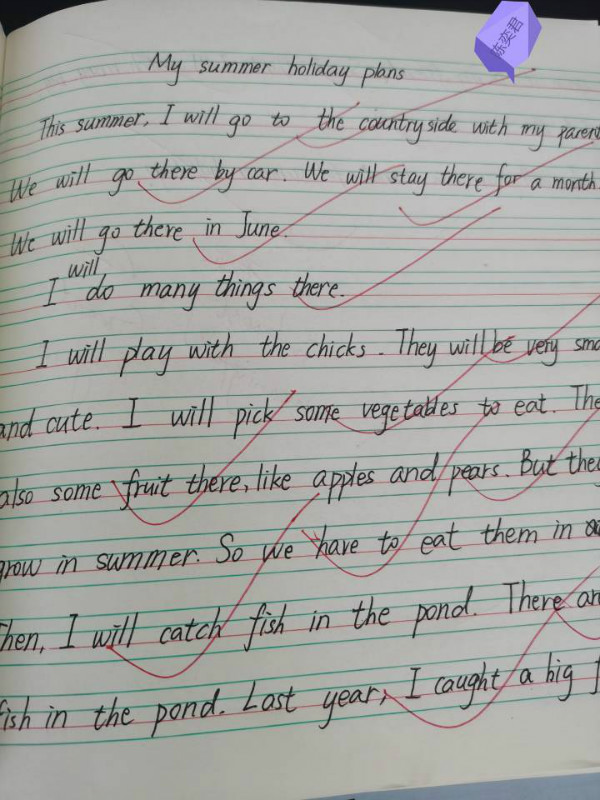 陈奕君
My summer holiday plans
This summer, I will go to the countryside with my parent
We will go there by car. We will stay there for a month.
We will go there in June.
will
I do many things there.
I will play with the chicks. They will be very sma
and cute. I will pick some vegetables to eat. The
also some fruit there, like apples and pears. But they
grow in summer. So we have to eat them in
Then, I will catch fish in the pond. There ar
fish in the pond. Last year, I caught a big f